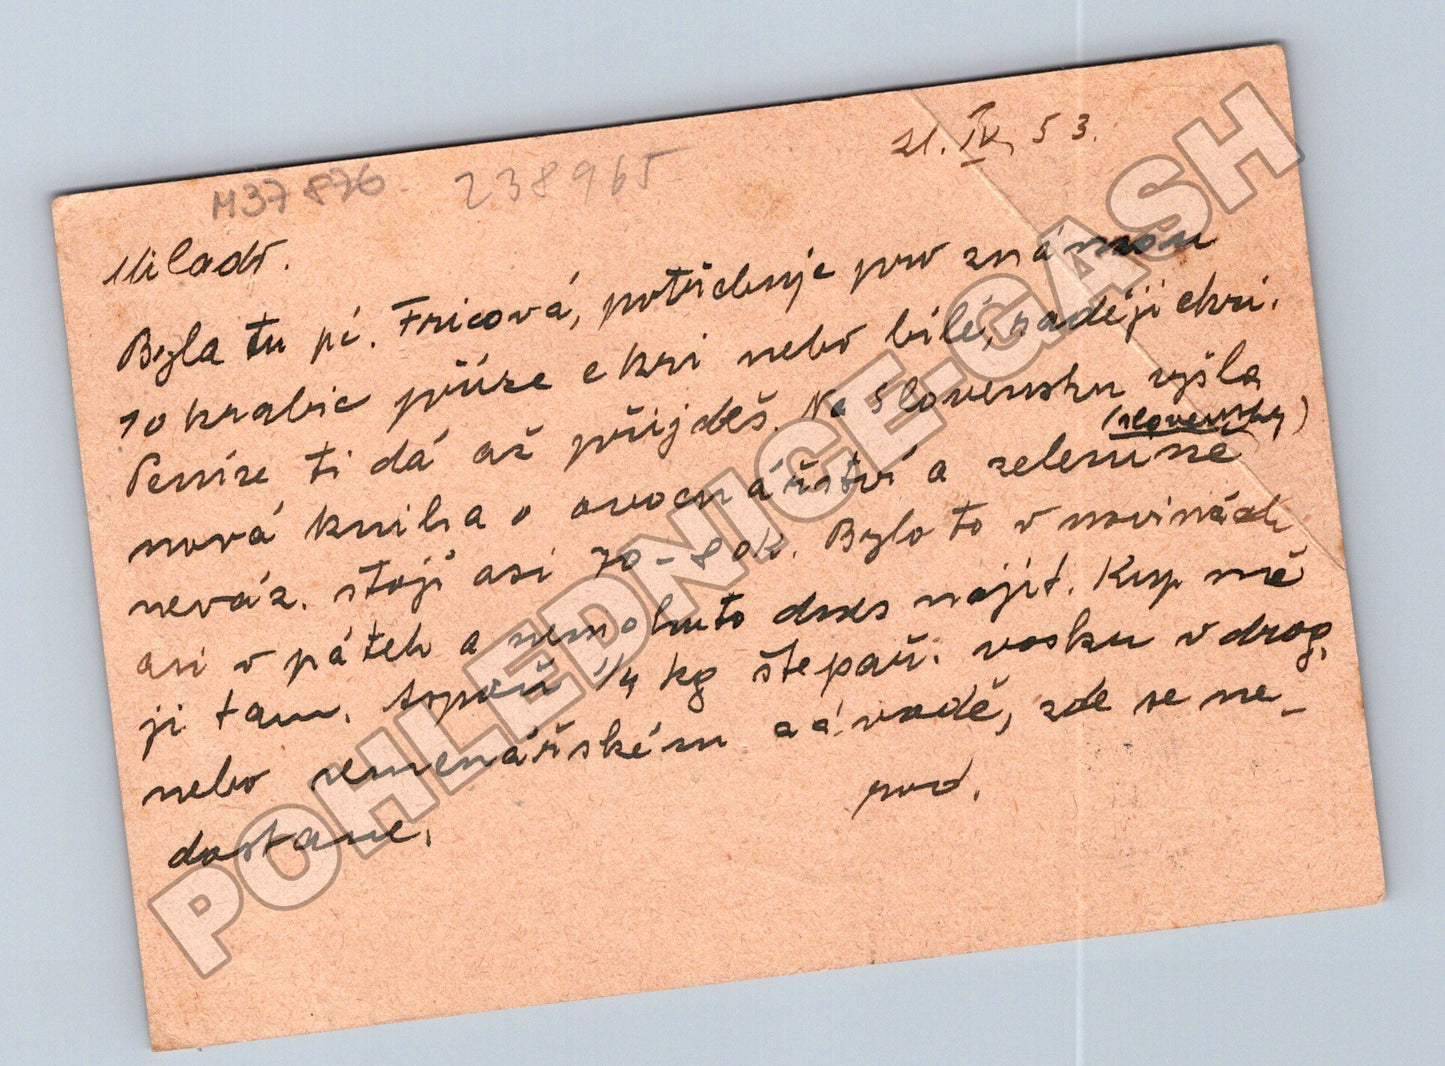 M37 876 238965
21. IV. 53.
Milado.
Byla tu pí. Fricová, potřebuje pro známou
10 krabic příze ekri nebo bílé, raději ekri.
Peníze ti dá až přijdeš. Na Slovensku vyšla
(slovensky)
nová kniha o ovocnářství a zelenině
neváz. stojí asi 70-80k. Bylo to v novinách
asi v pátek a nemohu to dnes najít. Kup mě
ji tam. Aspoň 1/4 kg štěpař. vosku v drog.
nebo semenářském závodě, zde se ne-
dostane.
POHLEDNICE-GASH